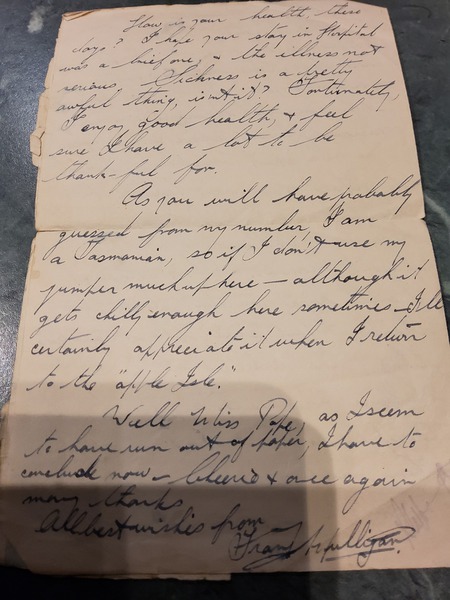 How is your health, these
days? I hope your stay in Hospital
was a brief one, & the illness not
serious. Sickness is a pretty
awful thing, isn't it? Fortunately,
I enjoy good health, & feel
sure I have a lot to be
thank-ful for.
As you will have probably
guessed from my number, I am
a Tasmanian, so if I don't use my
jumper much up here – although it
gets chilly enough here sometimes – I'll
certainly appreciate it when I return
to the "apple Isle."
Well Miss Pope, as I seem
to have run out of paper, I have to
conclude now – Cheerio & once again
many thanks
All best wishes from